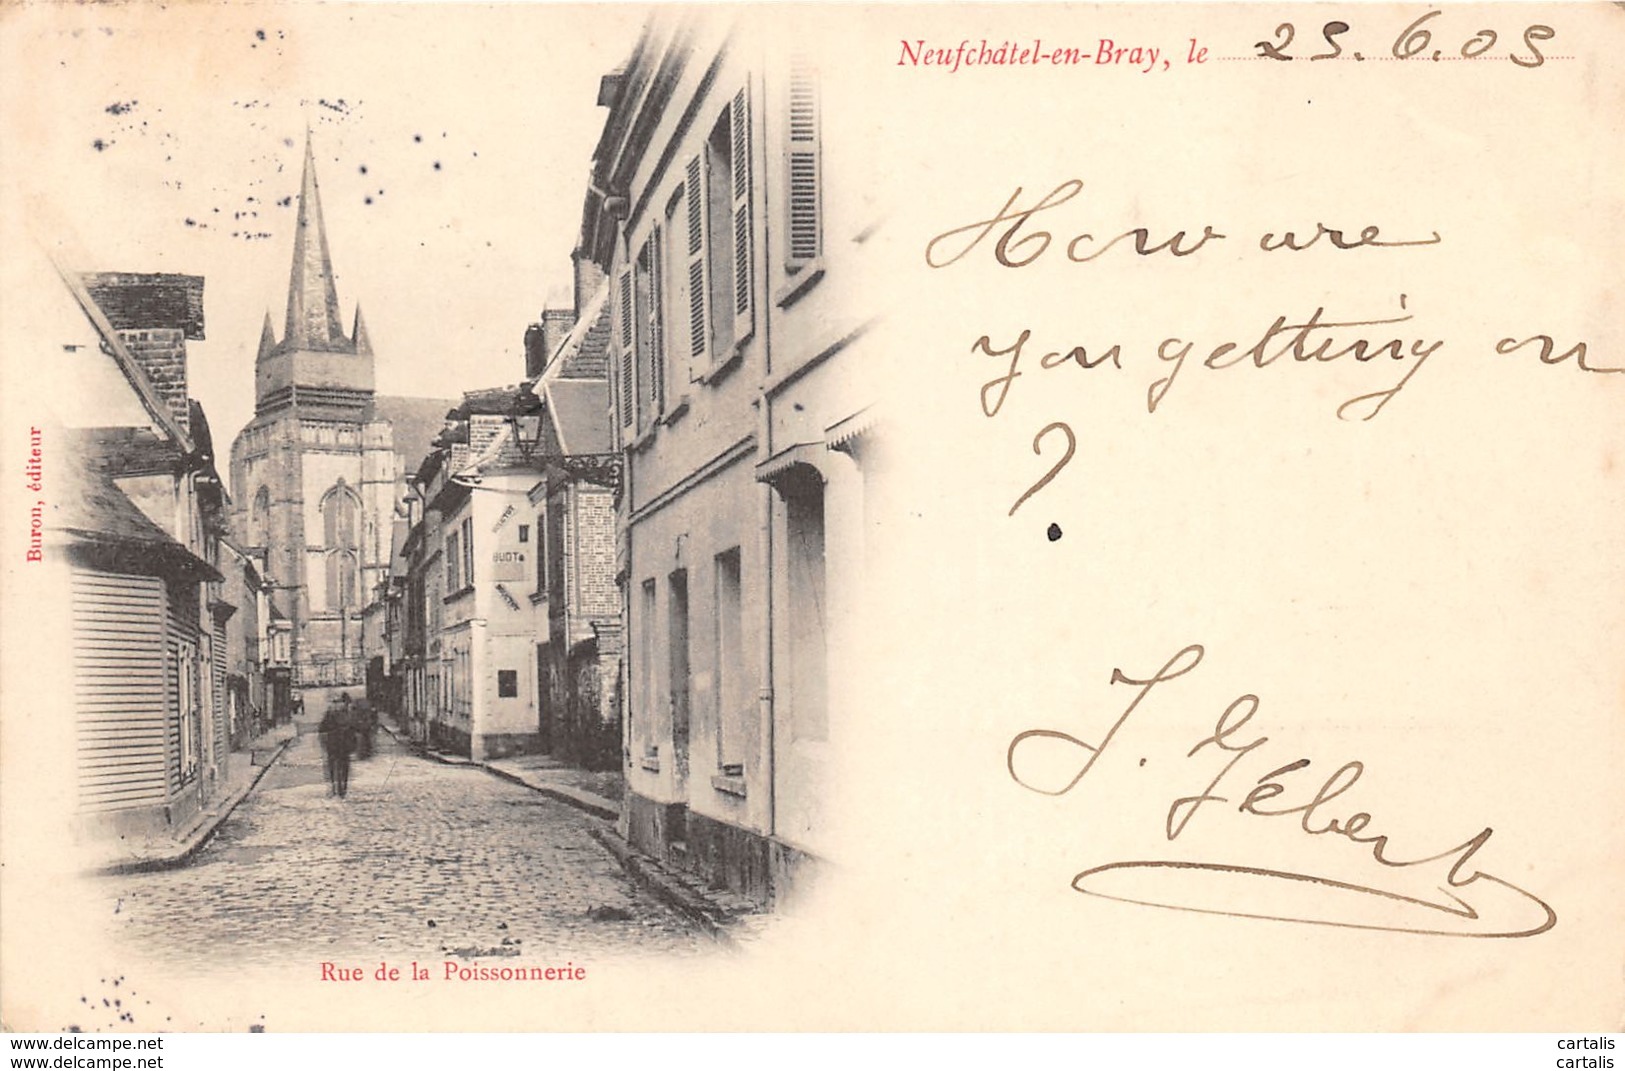 Neufchâtel-en-Bray, le 25.6.05
How are
you getting on
?
J. Gébert
Buron, éditeur
BUOT
Rue de la Poissonnerie
www.delcampe.net
cartalis
cartalis